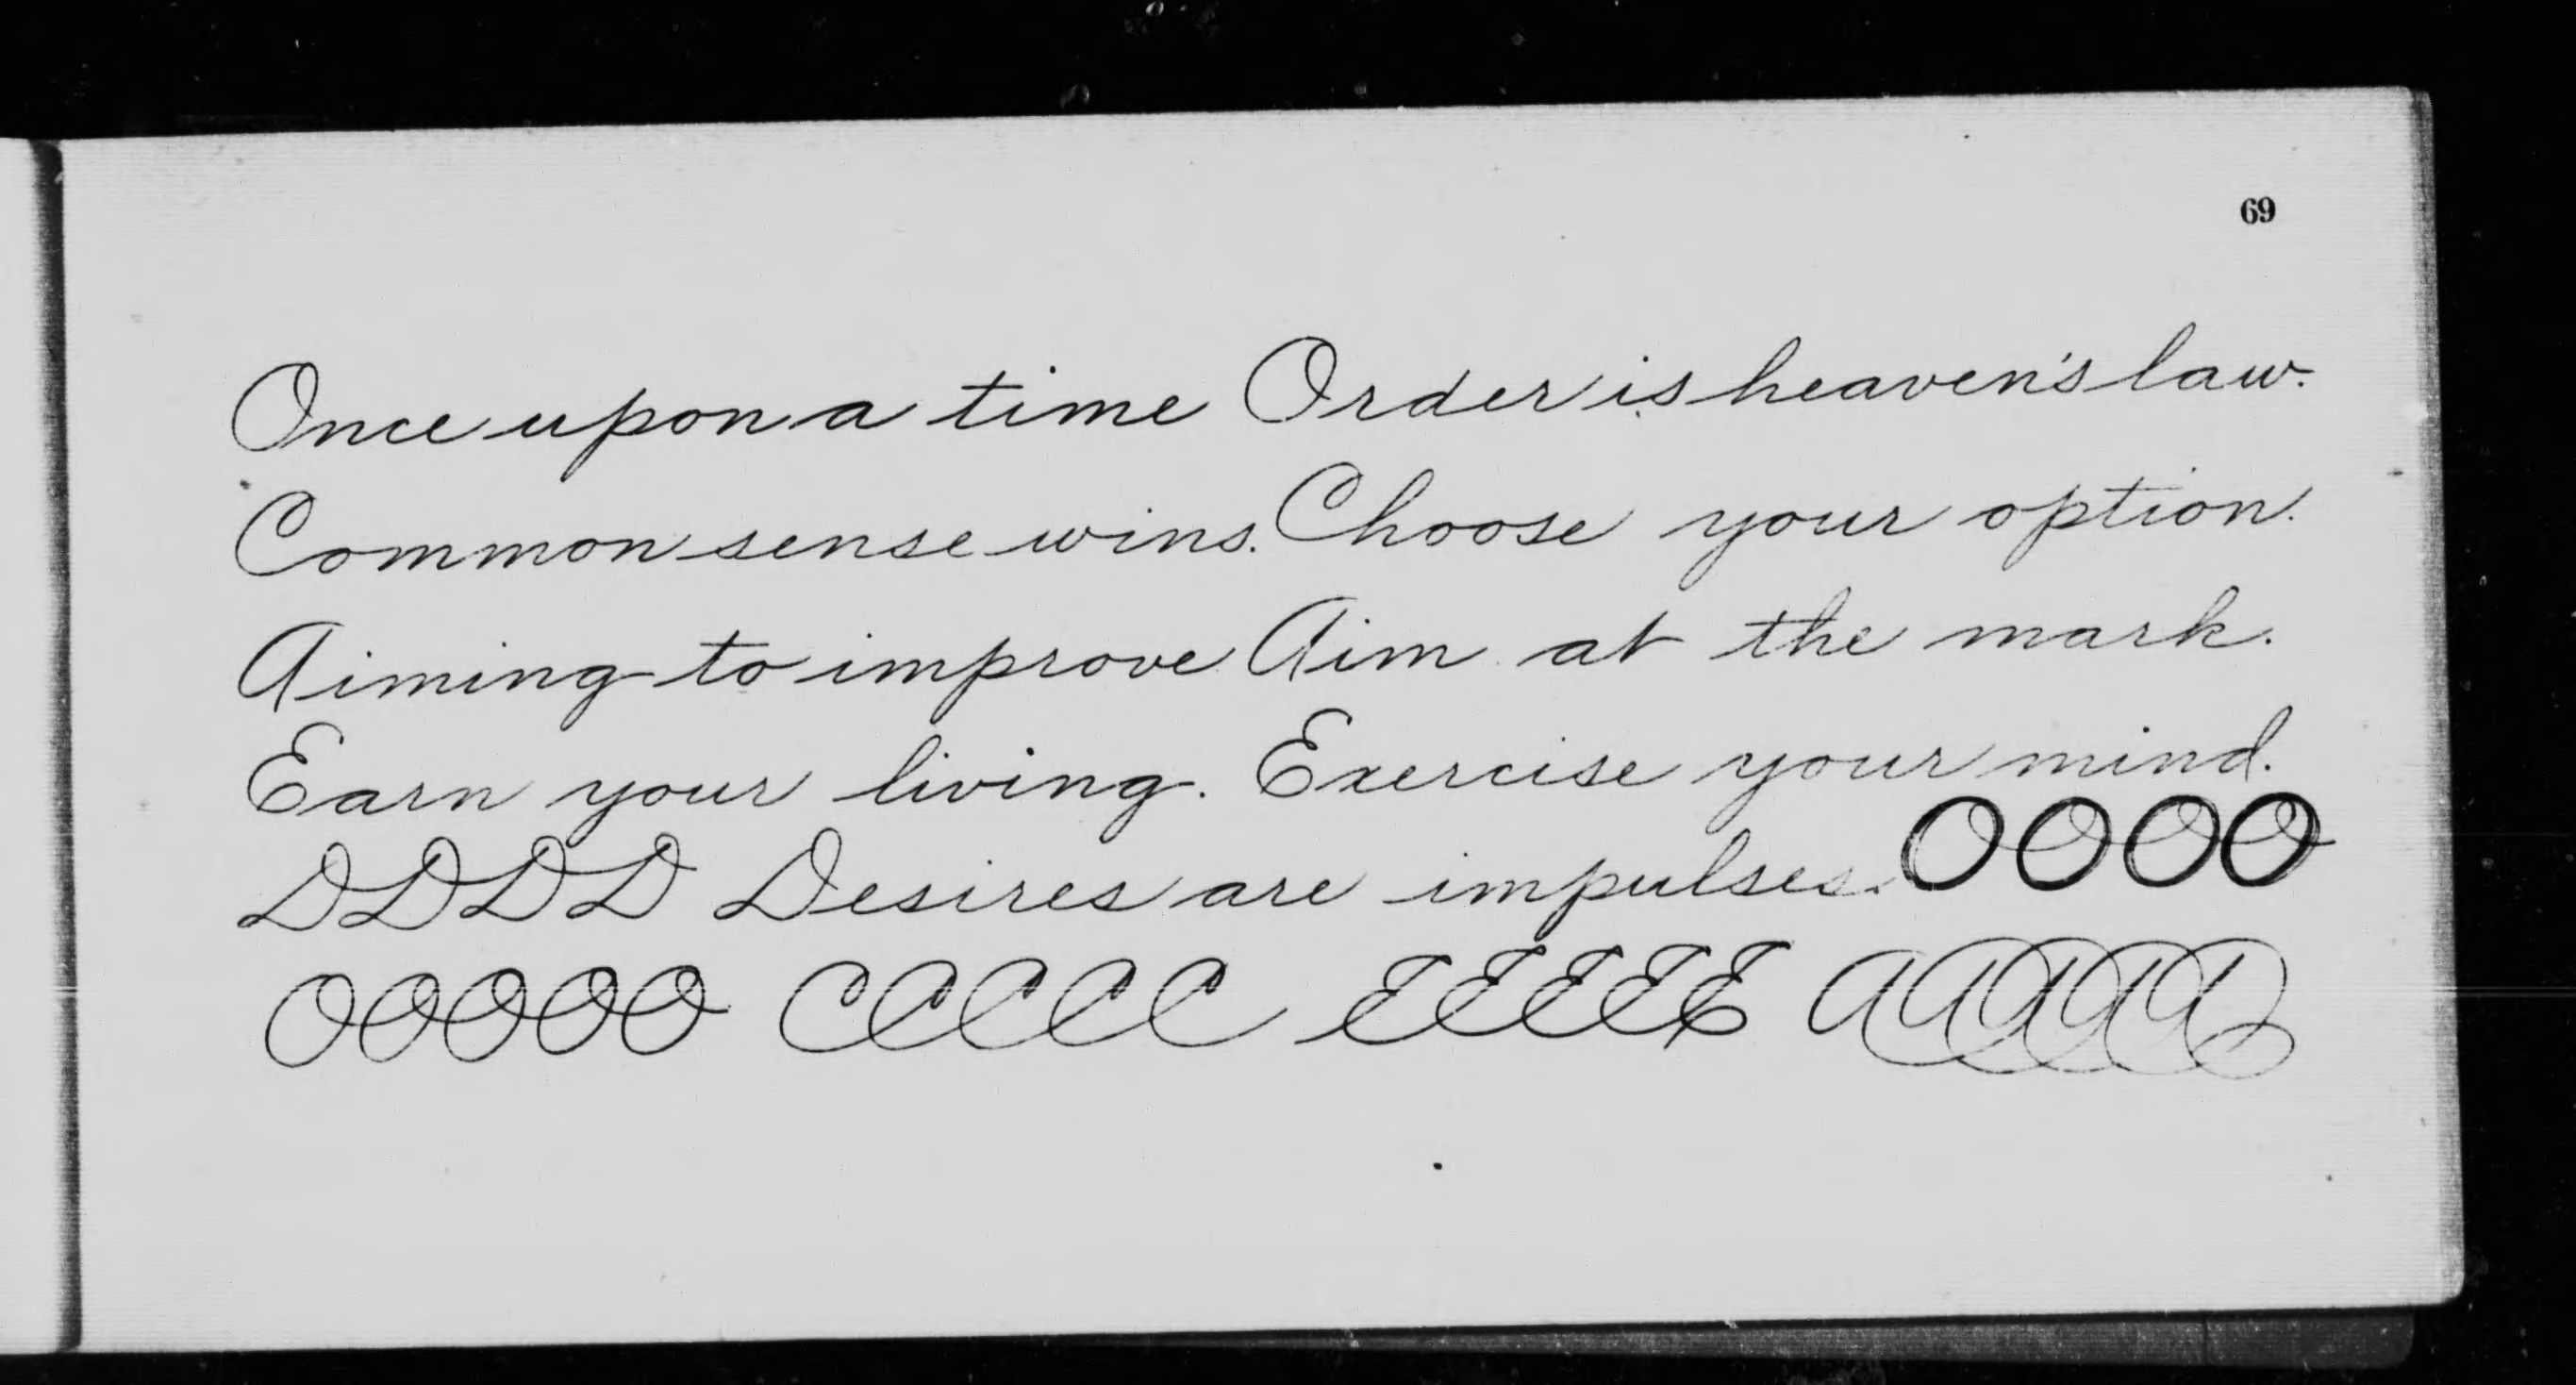 69
Once upon a time Order is heaven's law.
Common sense wins. Choose your option.
Aiming to improve Aim at the mark.
Earn your living. Exercise your mind.
DDDD Desires are impulses. OOOO
OOOOO CCCCC EEEEE AAAAA